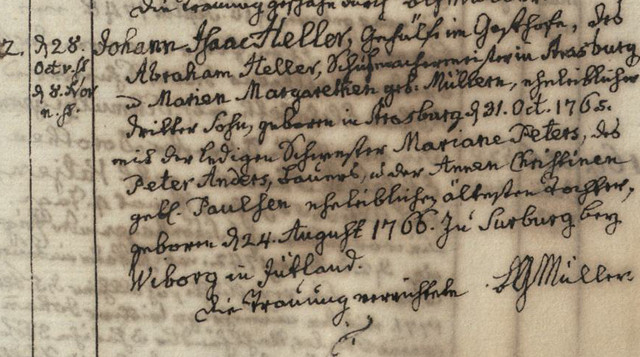 die Trauung geschahe durch
2. d 28. Johann Isaac Heller, Gehülfe im Gasthofe, des
Octr. st Abraham Heller, Schuhmachermeister in Strasburg
d 8. Nov u Marien Margarethen geb: Müllern, eheleiblicher
n. st. dritter Sohn, geboren in Strasburg d 31. Oct. 1765.
mit der ledigen Schwester Mariane Peters, des
Peter Anders, Bauers, u der Annen Christinen
gebl. Paulsen eheleiblichen ältesten Tochter,
geboren d 24. August 1766. zu Surburg bey
Wiborg in Jütland.
die Trauung verrichtete Müller.